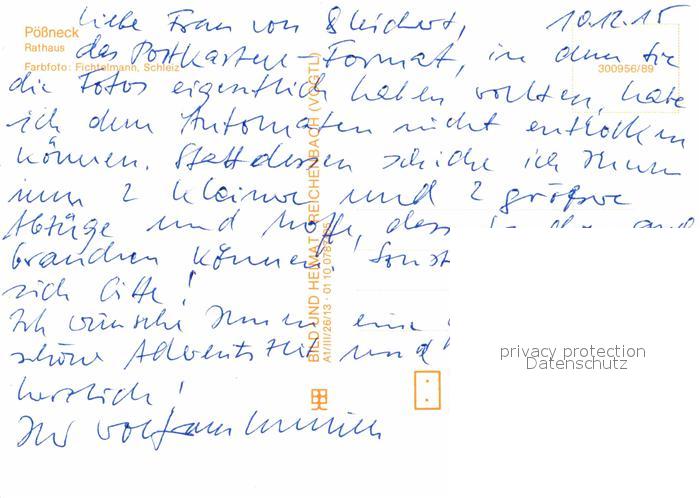 Liebe Frau von Bleichert, 10.12.15
Pößneck
Rathaus
das Postkarten-Format, in dem Sie
Farbfoto: Fichtelmann, Schleiz
300956/89
die Fotos eigentlich haben wollten, habe
ich dem Automaten nicht entlocken
können. Stattdessen schicke ich Ihnen
nun 2 kleine und 2 größere
Abzüge und hoffe, dass
brauchen können. Sonst
sich bitte!
Ich wünsche Ihnen eine
schöne Adventszeit und
herzlich!
Ihr Wolfram
BILD UND HEIMAT REICHENBACH (VOGTL)
A1/III/26/13 · 01 10 0787
privacy protection
Datenschutz